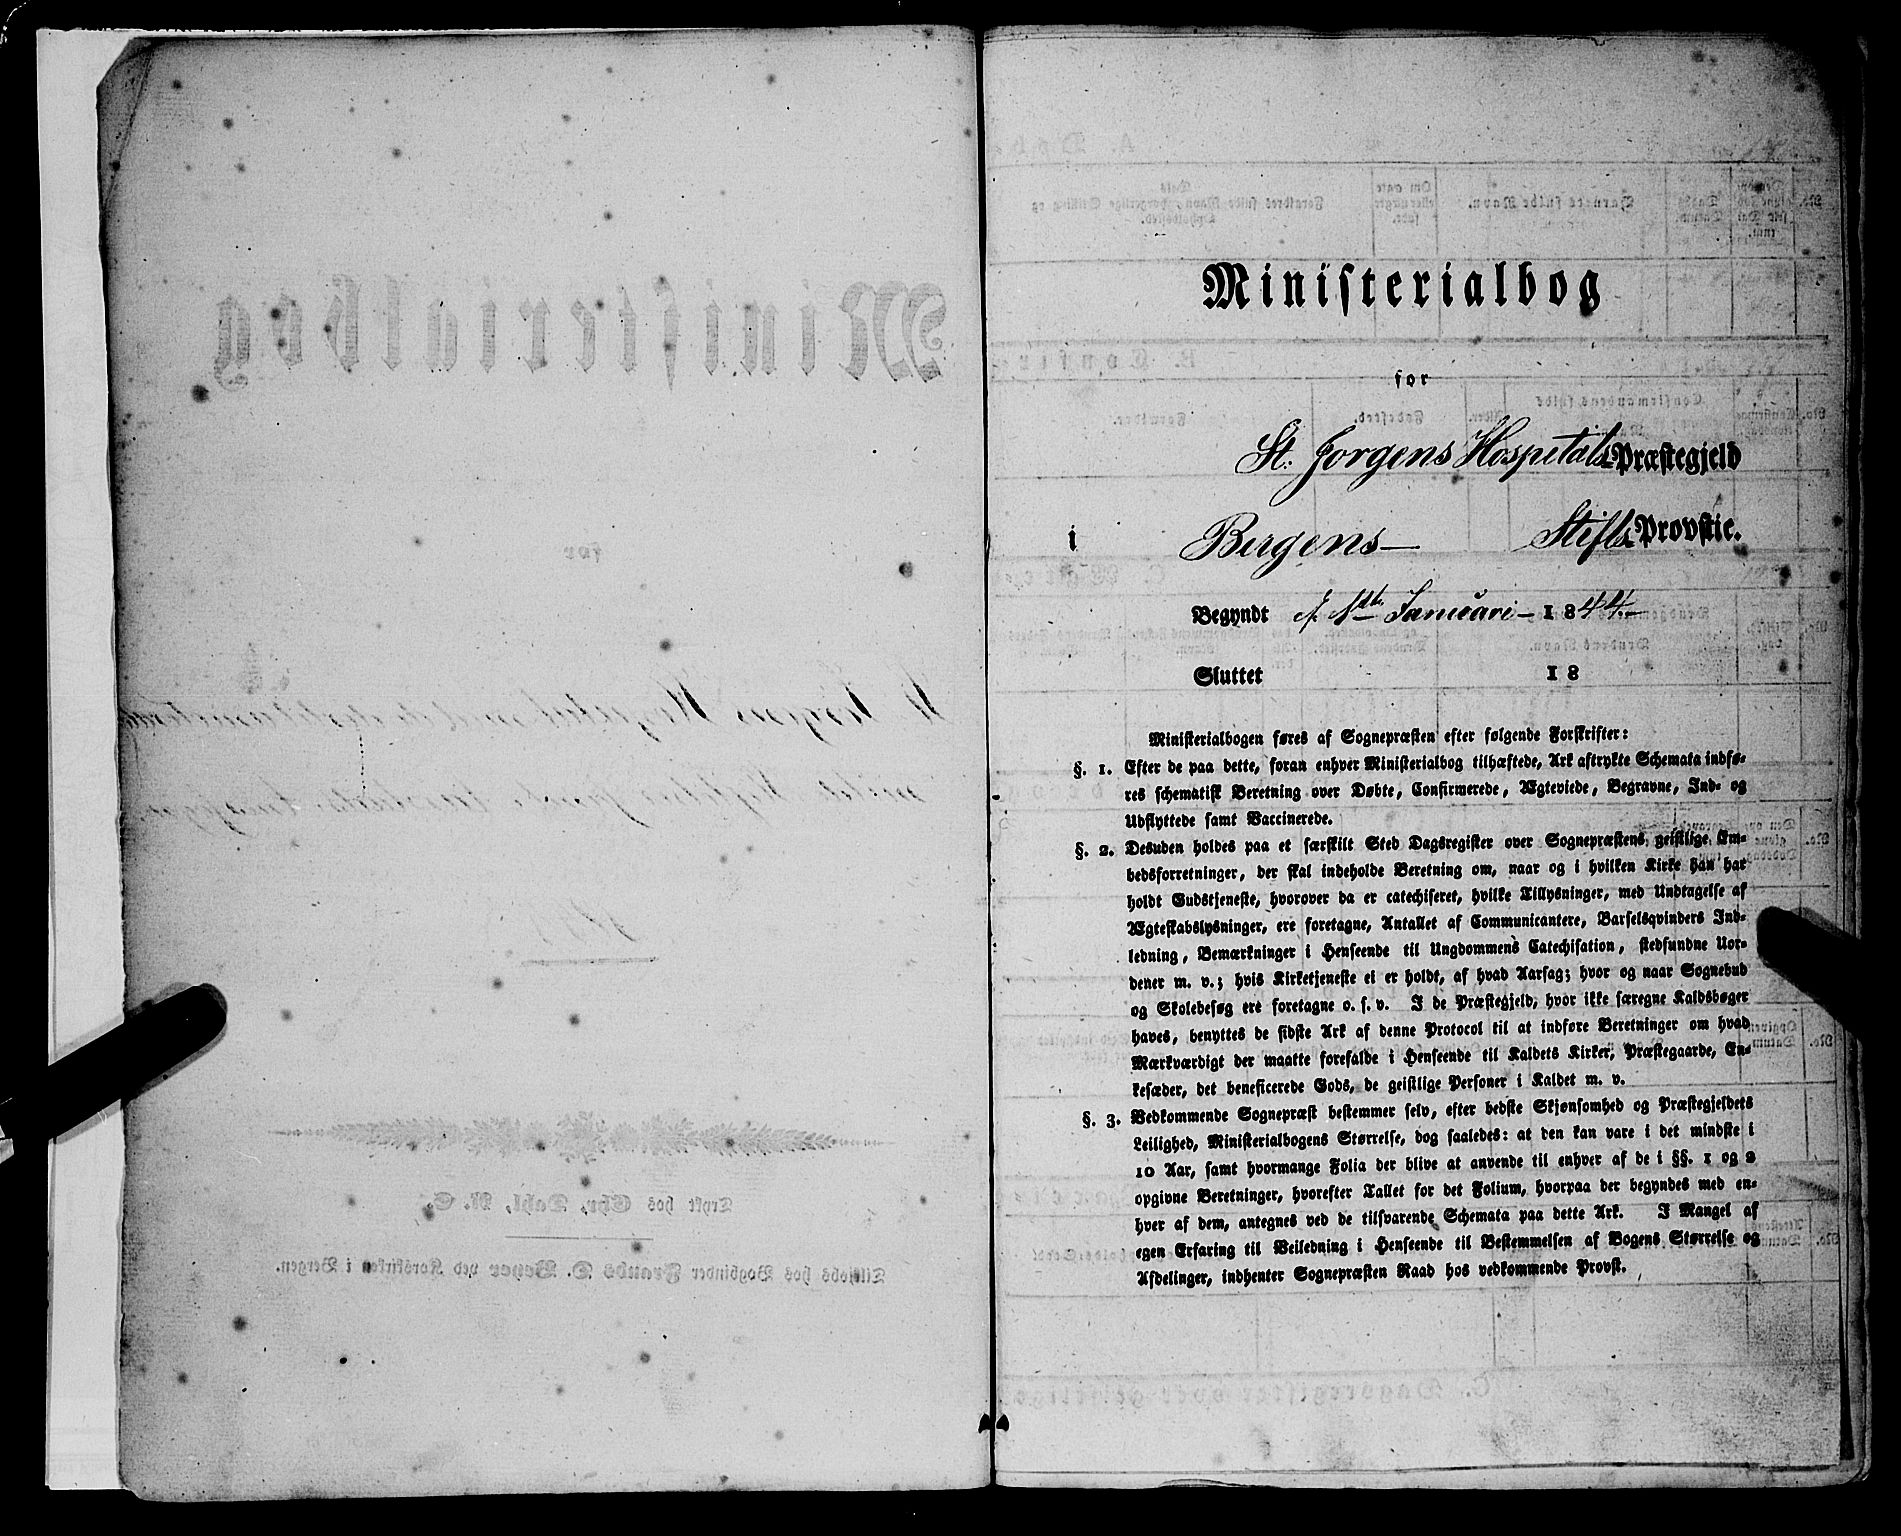 Ministerialbog
for
St. Jørgens Hospitals Præstegjeld
i Bergens Stifts Provstie.
Begyndt d. 1ste Januari 1844.
Sluttet 18
Ministerialbogen føres af Sognepræsten efter følgende Forskrifter:
§. 1. Efter de paa dette, foran enhver Ministerialbog tilhæftede, Ark aftrykte Schemata indfø-
res schematisk Beretning over Døbte, Confirmerede, Ægteviede, Begravne, Ind- og
Udflyttede samt Vaccinerede.
§. 2. Desuden holdes paa et særskilt Sted Dagsregister over Sognepræstens geistlige Em-
bedsforretninger, der skal indeholde Beretning om, naar og i hvilken Kirke han har
holdt Gudstjeneste, hvorover da er catechiseret, hvilke Tillysninger, med Undtagelse af
Ægteskabslysninger, ere foretagne, Antallet af Communicantere, Barselsqvinders Ind-
ledning, Bemærkninger i Henseende til Ungdommens Catechisation, stedfundne Uor-
dener m. v.; hvis Kirketjeneste ei er holdt, af hvad Aarsag; hvor og naar Sognebud
og Skolebesøg ere foretagne o. s. v. I de Præstegjeld, hvor ikke særegne Kaldsbøger
haves, benyttes de sidste Ark af denne Protocol til at indføre Beretninger om hvad
Mærkværdigt der maatte forefalde i Henseende til Kaldets Kirker, Præstegaarde, En-
kesæder, det beneficerede Gods, de geistlige Personer i Kaldet m. v.
§. 3. Vedkommende Sognepræst bestemmer selv, efter bedste Skjønsomhed og Præstegjeldets
Leilighed, Ministerialbogens Størrelse, dog saaledes: at den kan vare i det mindste i
10 Aar, samt hvormange Folia der blive at anvende til enhver af de i §§. 1 og 2
opgivne Beretninger, hvorefter Tallet for det Folium, hvorpaa der begyndes med en-
hver af dem, antegnes ved de tilsvarende Schemata paa dette Ark. I Mangel af
egen Erfaring til Veiledning i Henseende til Bestemmelsen af Bogens Størrelse og
Afdelinger, indhenter Sognepræsten Raad hos vedkommende Provst.